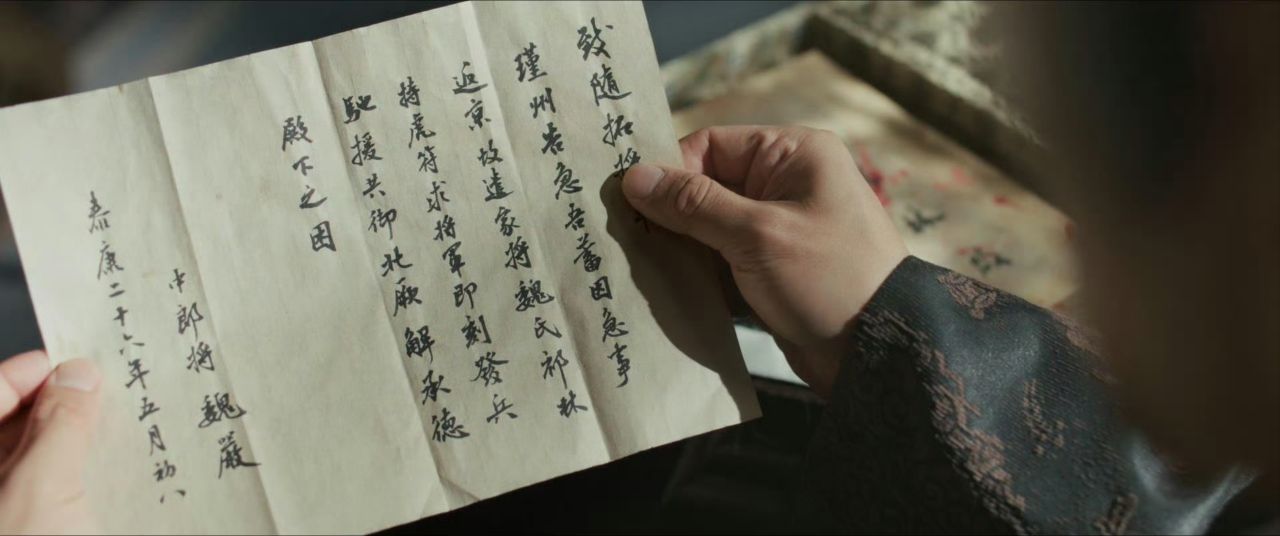 致隨拓將
瑾州告急吾蓄因急事
返京故遣家將魏氏祁林
持虎符求將軍即刻發兵
馳援共御北厥解承德
殿下之困
中郎將魏嚴
泰康二十六年五月初八